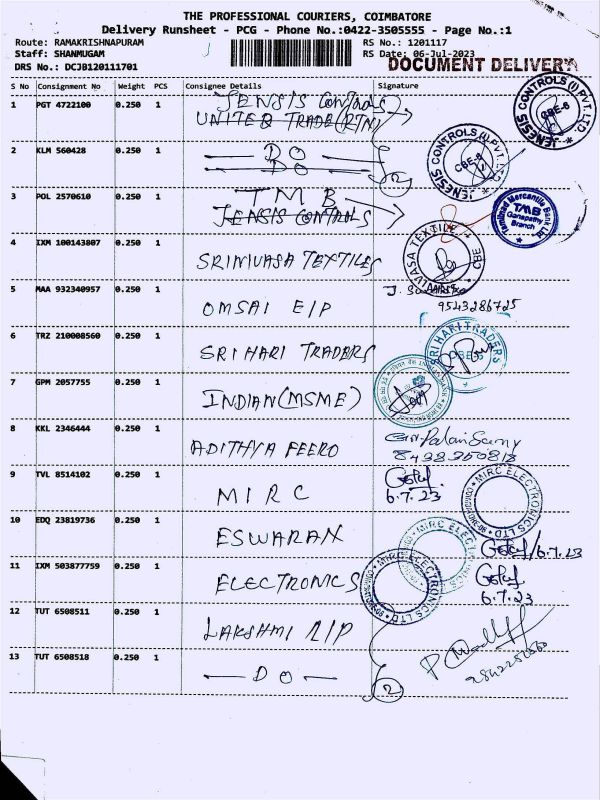 THE PROFESSIONAL COURIERS, COIMBATORE
Delivery Runsheet - PCG - Phone No.:0422-3505555 - Page No.:1
Route: RAMAKRISHNAPURAM
RS No.: 1201117
Staff: SHANMUGAM
RS Date: 06-Jul-2023
DRS No.: DCJB120111701
DOCUMENT DELIVERY
S No Consignment No Weight PCS Consignee Details Signature
1 PGT 4722100 0.250 1 JENSIS CONTROLS
UNITED TRADE (RTN)
JENESIS CONTROLS (I) PVT. LTD CBE-6
2 KLM 560428 0.250 1 DO
DO
2
JENESIS CONTROLS (I) PVT. LTD CBE-6
3 POL 2570610 0.250 1 TMB
JENSIS CONTROLS
Tamilnad Mercantile Bank Ltd TMB Ganapathy Branch
4 IXM 100143807 0.250 1 SRINIVASA TEXTILES
5 MAA 932340957 0.250 1 OMSAI E/P
9543286725
6 TRZ 210008560 0.250 1 SRI HARI TRADERS
SRI HARI TRADERS CBE-6
7 GPM 2057755 0.250 1 INDIAN (MSME)
8 KKL 2346444 0.250 1 ADITHYA FEERO
8438350818
9 TVL 8514102 0.250 1 MIRC
6.7.23
MIRC ELECTRONICS LTD
10 EDQ 23819736 0.250 1 ESWARAN
6.7.23
MIRC ELECTRONICS LTD
11 IXM 503877759 0.250 1 ELECTRONICS
6.7.23
MIRC ELECTRONICS LTD
12 TUT 6508511 0.250 1 LAKSHMI
13 TUT 6508518 0.250 1 DO
2